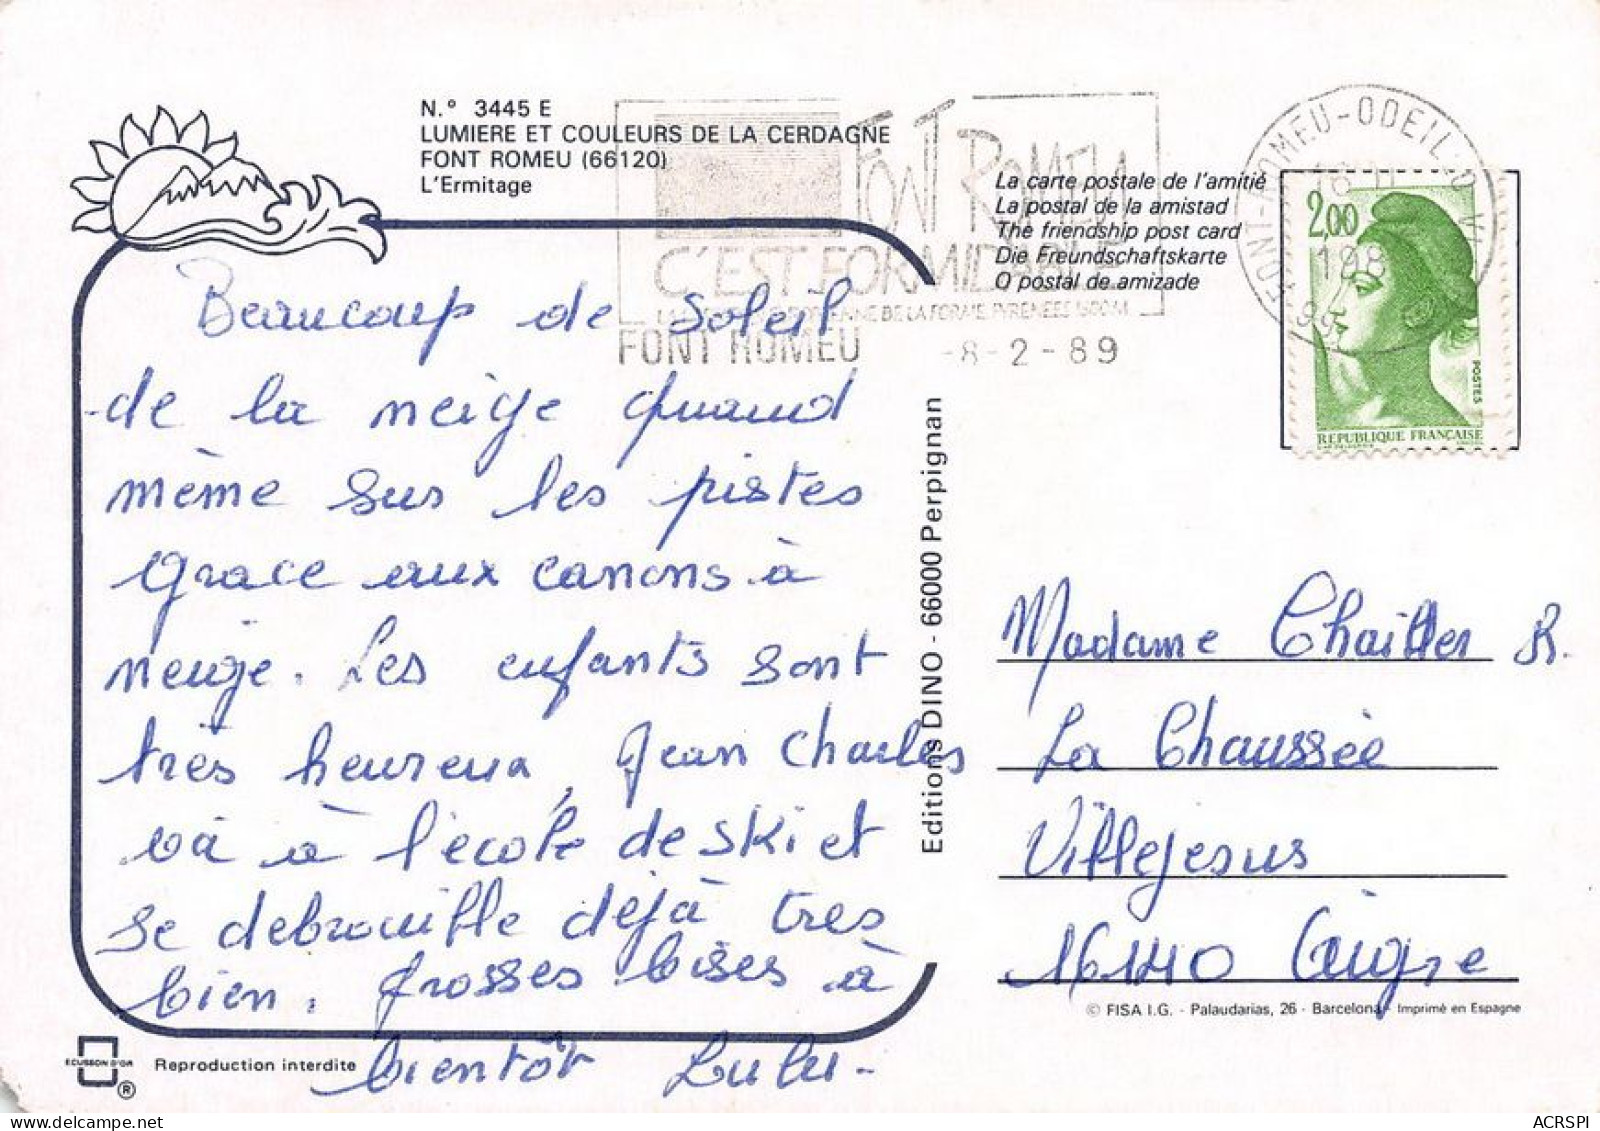 N.º 3445 E
LUMIERE ET COULEURS DE LA CERDAGNE
FONT ROMEU (66120)
L'Ermitage
FONT ROMEU
C'EST FORMIDABLE
FONT ROMEU -8-2-89
La carte postale de l'amitié
La postal de la amistad
The friendship post card
Die Freundschaftskarte
O postal de amizade
FONT-ROMEU-ODEILLO VIA
2,00
POSTES
REPUBLIQUE FRANÇAISE
Beaucoup de soleil
de la neige quand
même sur les pistes
grace aux canons à
neige. Les enfants sont
très heureux, Jean Charles
va à l'école de ski et
se debrouille déjà tres
bien. Grosses bises à
bientôt Lulu-
Editions DINO - 66000 Perpignan
Madame
La Chaussée
Villejesus
16140 Aigre
© FISA I.G. - Palaudarias, 26 - Barcelona - Imprimé en Espagne
ECUSSON D'OR
®
Reproduction interdite
ACRSPI